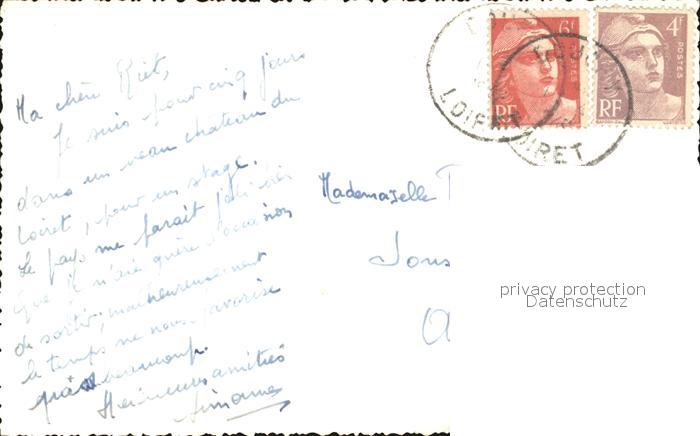 Ma chère Riet,
Je suis pour cinq jours
dans un beau chateau du
Loiret, pour un stage.
Le pays me parait joli bien
que je n'aie guère l'occasion
de sortir, malheureusement
le temps ne nous favorise
pas beaucoup.
Meilleures amitiés
Simone
Mademoiselle
6F
POSTES
RF
4F
POSTES
RF
LOIRET
LOIRET
privacy protection
Datenschutz